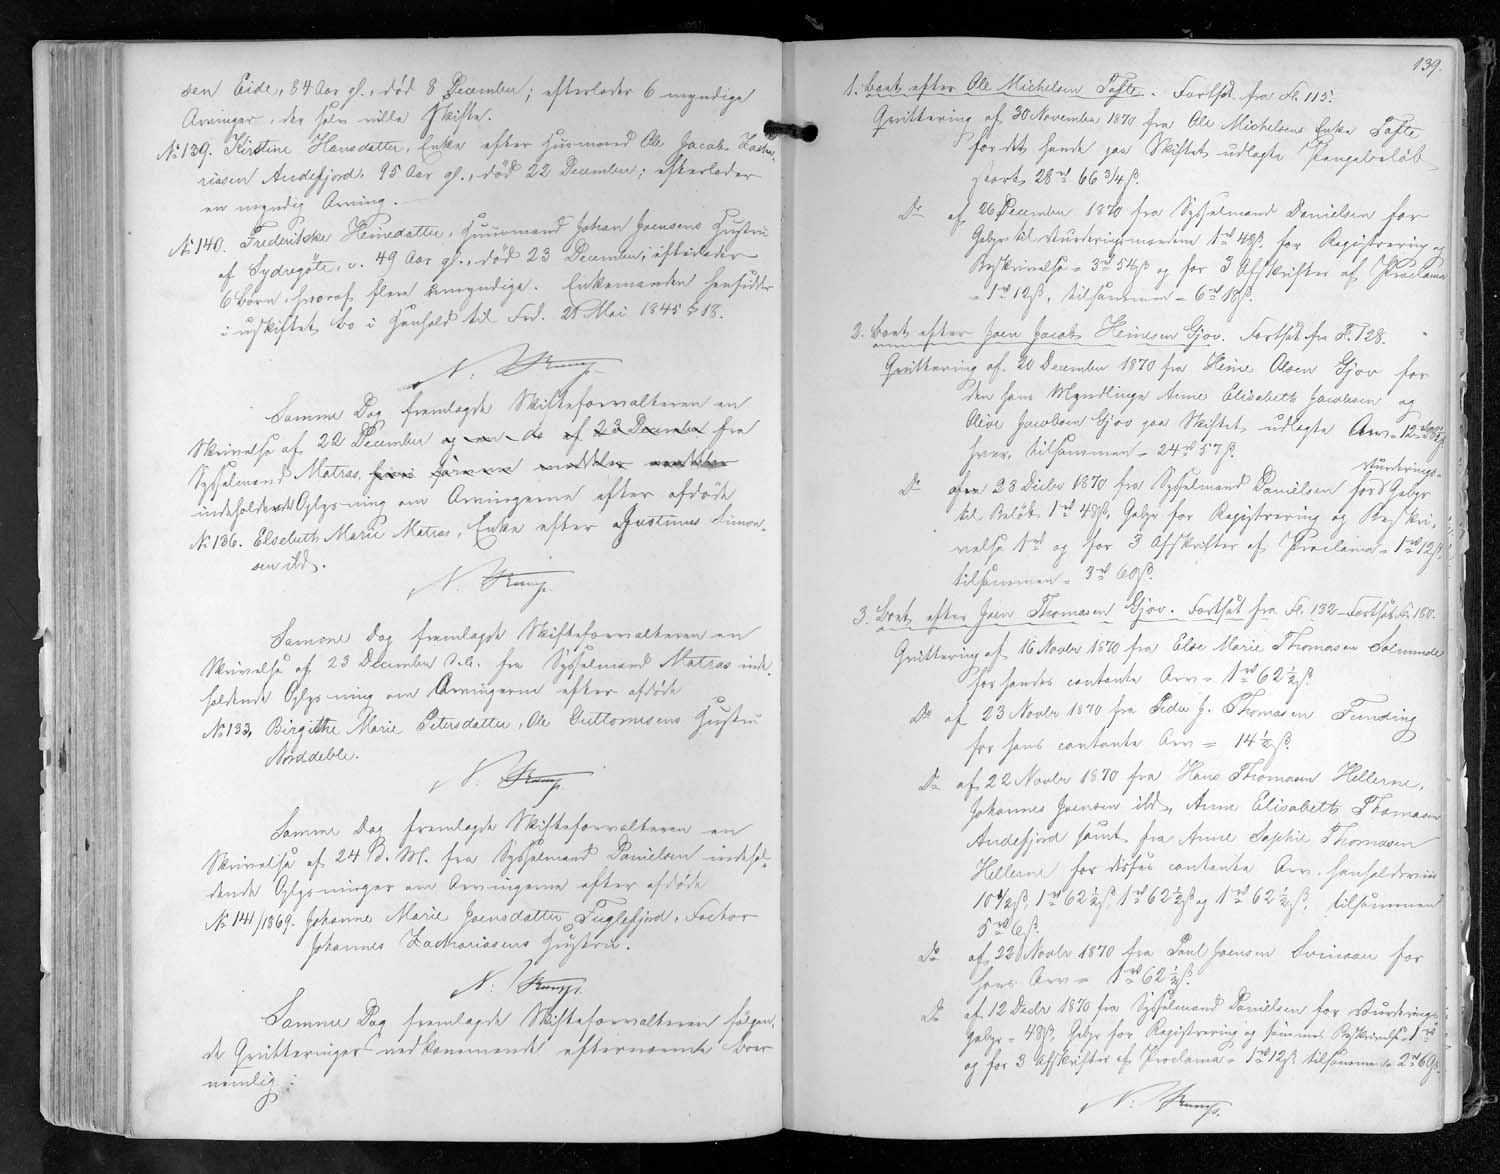 sen Eide, 84 Aar gl., død 8 December; efterlader 6 myndige
Arvinger, der selv ville skifte.
No 139. Kirstine Hansdatter, Enke efter Huusmand Ole Jacob Zacha-
riasen Andefjord, 95 Aar gl., død 22 December; efterlader
en myndig Arving. —
No 140. Frederikke Heinedatter, Huusmand Johan Joensens Hustru
af Sydregøte, c. 49 Aar gl., død 23 December; efterlader
6 Børn, hvoraf flere umyndige. Enkemanden hensidder
i uskiftet Bo i Henhold til Frd. 21 Mai 1845 § 18.
N:
Samme Dag fremlagde Skifteforvalteren en
Skrivelse af 22 December og en do af 23 December fra
Sysselmand Matras,
indeholdende Oplysning om Arvingerne efter afdøde
No 136. Elsebeth Marie Matras, Enke efter Justinus Simon-
sen ibd.
N:
Samme Dag fremlagde Skifteforvalteren en
Skrivelse af 23 December d.A. fra Sysselmand Matras inde-
holdende Oplysning om Arvingerne efter afdøde
No 133, Birgithe Marie Petersdatter, Ole Guttormsens Hustru
Norddeble.
N:
Samme Dag fremlagde Skifteforvalteren en
Skrivelse af 24 d. M. fra Sysselmand Danielsen indehol-
dende Oplysninger om Arvingerne efter afdøde
No 141/1869. Johanne Marie Joensdatter Fuglefjord, Factor
Johannes Zachariasens Hustru.
N:
Samme Dag fremlagde Skifteforvalteren følgen-
de Qvitteringer vedkommende efternævnte Boer
nemlig:
139.
1. Boet efter Ole Michelsen Tofte. Fortsat fra Fl. 115.
Qvittering af 30 November 1870 fra Ole Michelsens Enke Tofte
for det hende paa Skiftet udlagte Pengebeløb
stort 28 rd 66 3/4 ß.
Do af 26 December 1870 fra Sysselmand Danielsen for
Gebyr til Vurderingsmændene 1 rd 48 ß, for Registrering og
Beskrivelse = 3 rd 54 ß og for 3 Afskrifter af Proclama
= 1 rd 12 ß, tilsammen = 6 rd 18 ß.
2. Boet efter Joen Jacob Heinesen Gjov. Fortsat fra Fl. 128.
Qvittering af 20 December 1870 fra Heine Olsen Gjov for
den hans Myndlinge Anne Elisabeth Jacobsen og
Olive Jacobsen Gjov paa Skiftet udlagte Arv = 12 rd
hver, tilsammen = 24 rd 57 ß.
Vurderings-
Do af 23 Decbr 1870 fra Sysselmand Danielsen for Gebyr
til Beløb 1 rd 48 ß, Gebyr for Registrering og Beskri-
velse 1 rd og for 3 Afskrifter af Proclama = 1 rd 12 ß,
tilsammen = 3 rd 60 ß.
3. Boet efter Joen Thomasen Gjov. Fortsat fra Fl. 132 — Fortsat Fl. 180.
Qvittering af 16 Novbr 1870 fra Else Marie Thomasen
for hendes contante Arv = 1 rd 62 1/2 ß.
Do af 23 Novbr 1870 fra Peder J. Thomasen Funding
for hans contante Arv = 14 1/2 ß.
Do af 22 Novbr 1870 fra Hans Thomasen Hellerne,
Johannes Joensen ibd, Anne Elisabeth Thomasen
Andefjord samt fra Anne Sophie Thomasen
Hellerne for disses contante Arv, henholdsviis
10 1/2 ß, 1 rd 62 1/2 ß, 1 rd 62 1/2 ß og 1 rd 62 1/2 ß, tilsammen
5 rd 6 ß.
Do af 22 Novbr 1870 fra Poul Joensen Svinaae for
hans Arv = 1 rd 62 1/2 ß.
Do af 12 Decbr 1870 fra Sysselmand Danielsen for Vurderings-
Gebyr = 48 ß, Gebyr for Registrering og sammes Beskrivelse = 1 rd
og for 3 Afskrifter af Proclama = 1 rd 12 ß tilsammen = 2 rd 60 ß.
N: